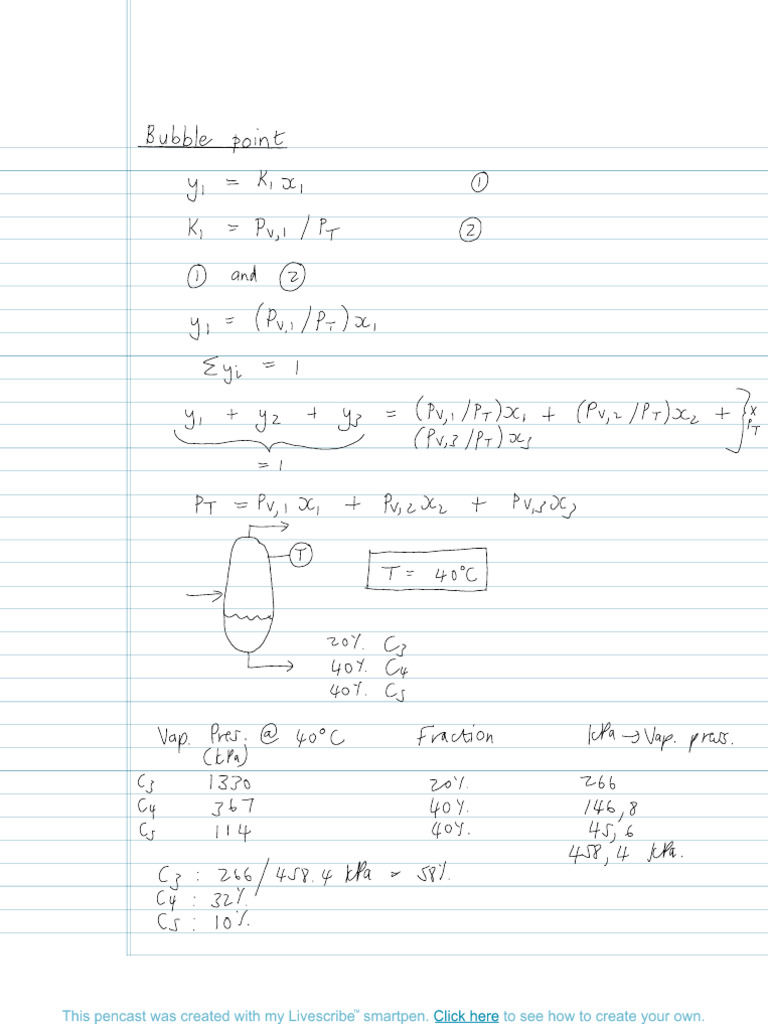 Bubble point
y₁ = K₁x₁ ①
K₁ = Pv,₁ / P_T ②
① and ②
y₁ = (Pv,₁/P_T)x₁
Σyi = 1
y₁ + y₂ + y₃ = (Pv,₁/P_T)x₁ + (Pv,₂/P_T)x₂ + } x P_T
(Pv,₃/P_T)x₃
= 1
P_T = Pv,₁x₁ + Pv,₂x₂ + Pv,₃x₃
T
T = 40°C
20% C₃
40% C₄
40% C₅
Vap. Pres. @ 40°C Fraction kPa → Vap. press.
(kPa)
C₃ 1330 20% 266
C₄ 367 40% 146,8
C₅ 114 40% 45,6
458,4 kPa.
C₃ : 266/458.4 kPa = 58%
C₄ : 32%
C₅ : 10%
This pencast was created with my Livescribe™ smartpen. Click here to see how to create your own.